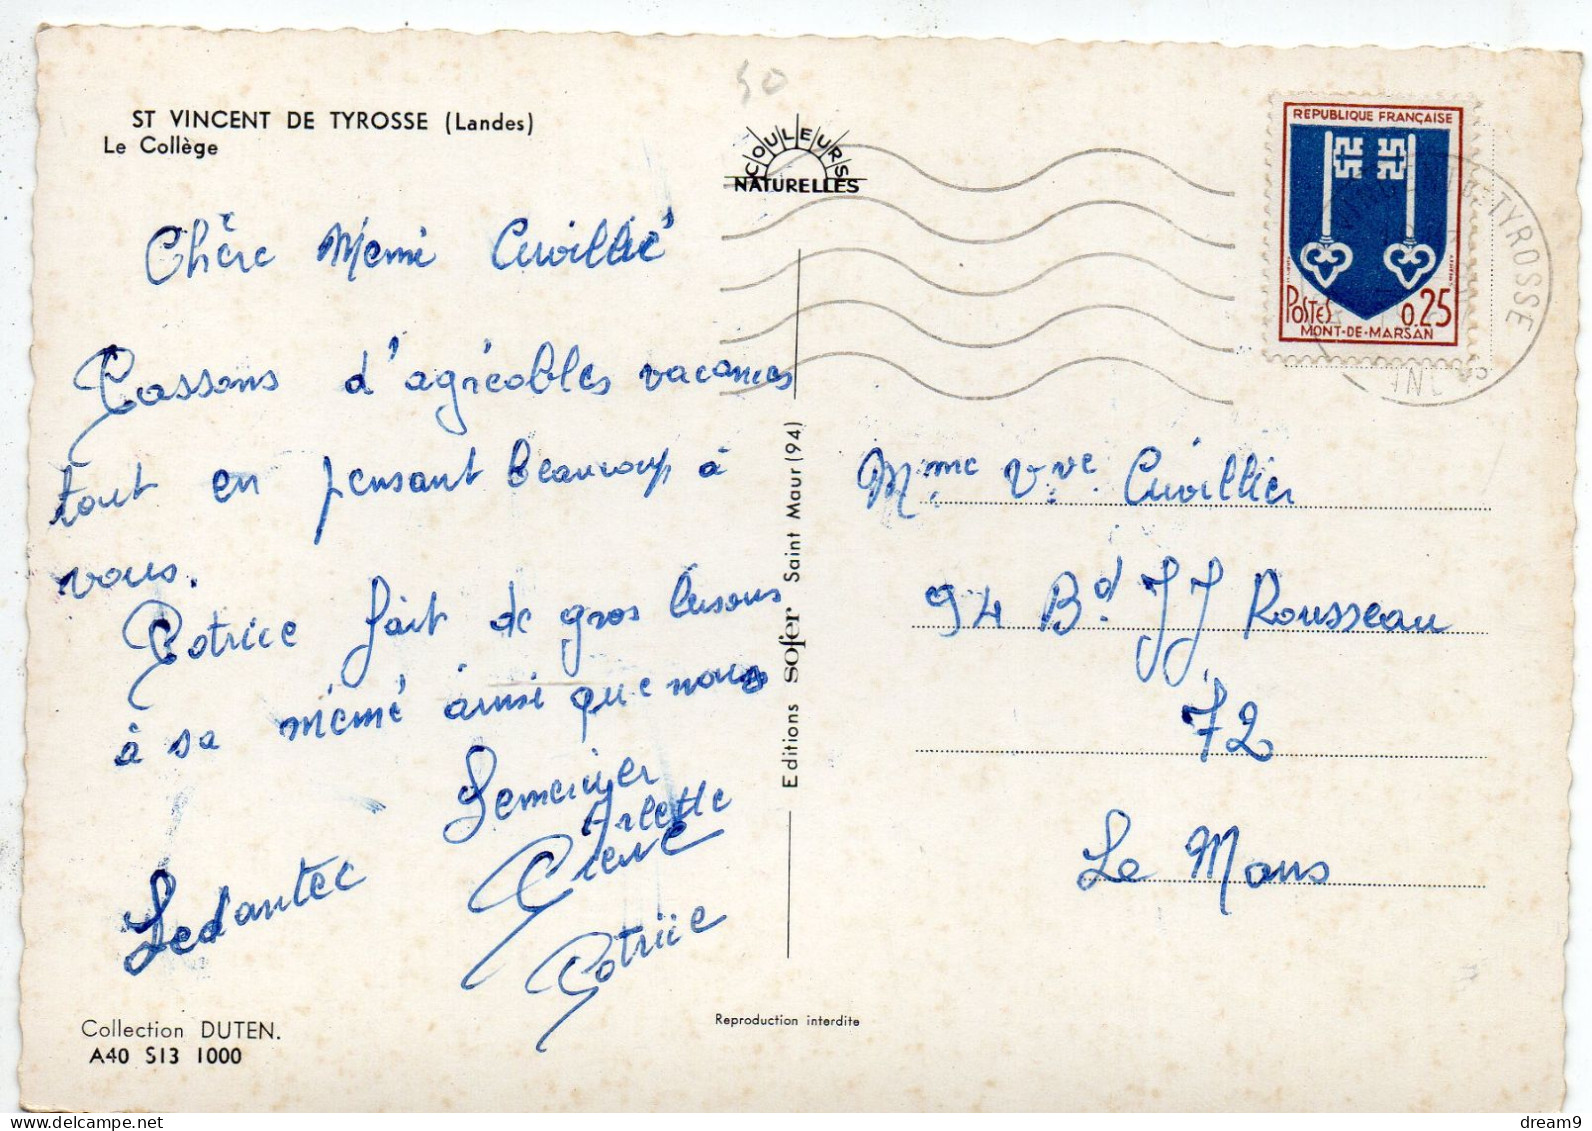 ST VINCENT DE TYROSSE (Landes)
Le Collège
50
COULEURS
NATURELLES
REPUBLIQUE FRANÇAISE
POSTES 0.25
MONT-DE-MARSAN
TYROSSE
Chère Mémé Cuvillié
Passons d'agréables vacances
tout en pensant beaucoup à
vous.
Patrice fait de gros bisous
à sa mémé ainsi que nous
Lemercier
Arlette
Pierre
Ledantec
Patrice
Editions sofer Saint Maur (94)
Mme Vve Cuvillier
94 Bd. JJ Rousseau
72
Le Mans
Collection DUTEN.
A40 S13 1000
Reproduction interdite
delcampe.net
dream9